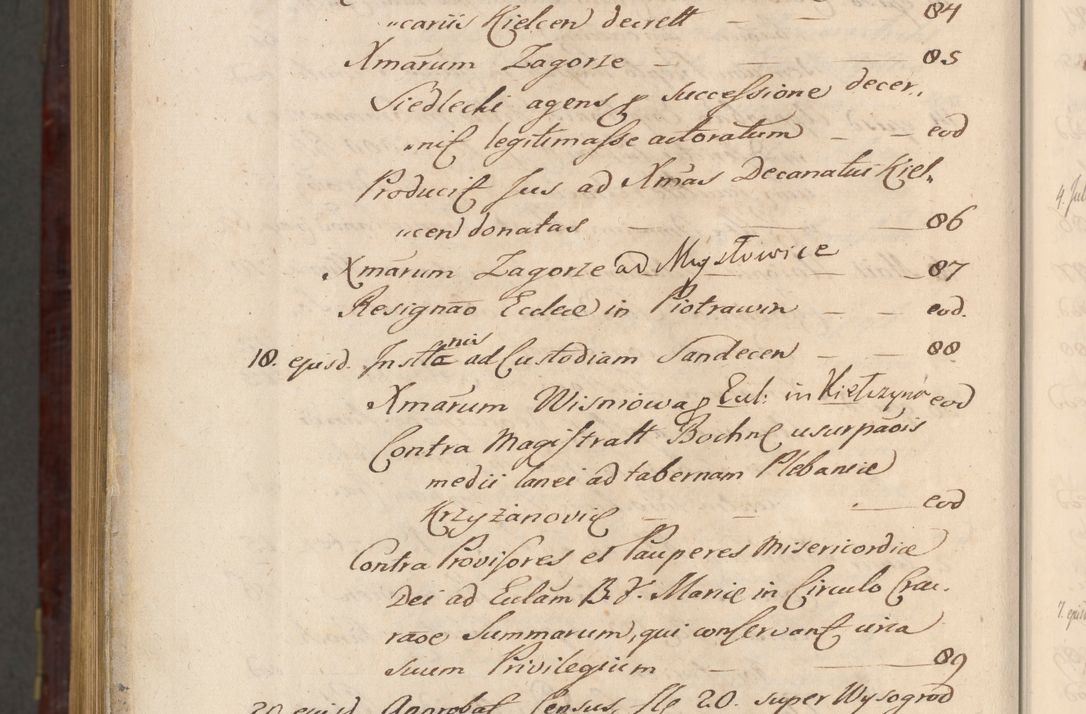 "cariis Kielcen decrett — — 84
Xmarum Zagorze — — 85
Siedlecki agens p successione decer"
"nis legitimasse actoratum — — eod
Producit Jus ad Xmas Decanatus Kiel"
"cen donatas — — 86
Xmarum Zagorze ad Mysłowice — 87
Resignao Eccleae in Piotrawin — — eod.
18. ejusd. Instta nis ad Custodiam Sandecen — — 88
Xmarum Wisniowa p Eccl: in Kiełczyno eod
Contra Magistratt Bochn usurpaois
medii lanei ad tabernam Plebaniae
Krzyżanovic — — — eod
Contra Provisores et Pauperes Misericordiae
Dei ad Ecclam B. V. Mariae in Circulo Crac.
raoe Summarum, qui conservant una
suum Privilegium — — 89
20 ejusd Approbat Census fl 20. super Wysogrod
4. Jul
7. ejus